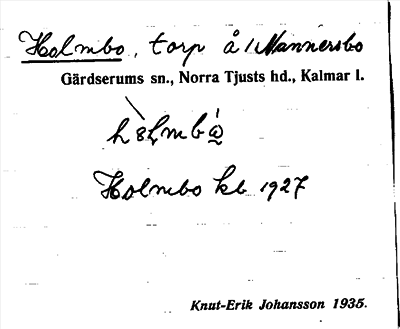 Holmbo, torp å / Mannersbo
Gärdserums sn., Norra Tjusts hd., Kalmar l.
Holmbo kb 1927
Knut-Erik Johansson 1935.